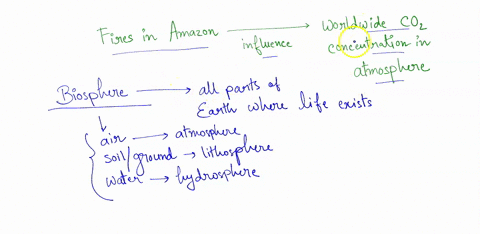 Fires in Amazon → Worldwide CO2
influence concentration in
atmosphere
Biosphere → all parts of
Earth where life exists
↓
air → atmosphere
soil/ground → lithosphere
water → hydrosphere